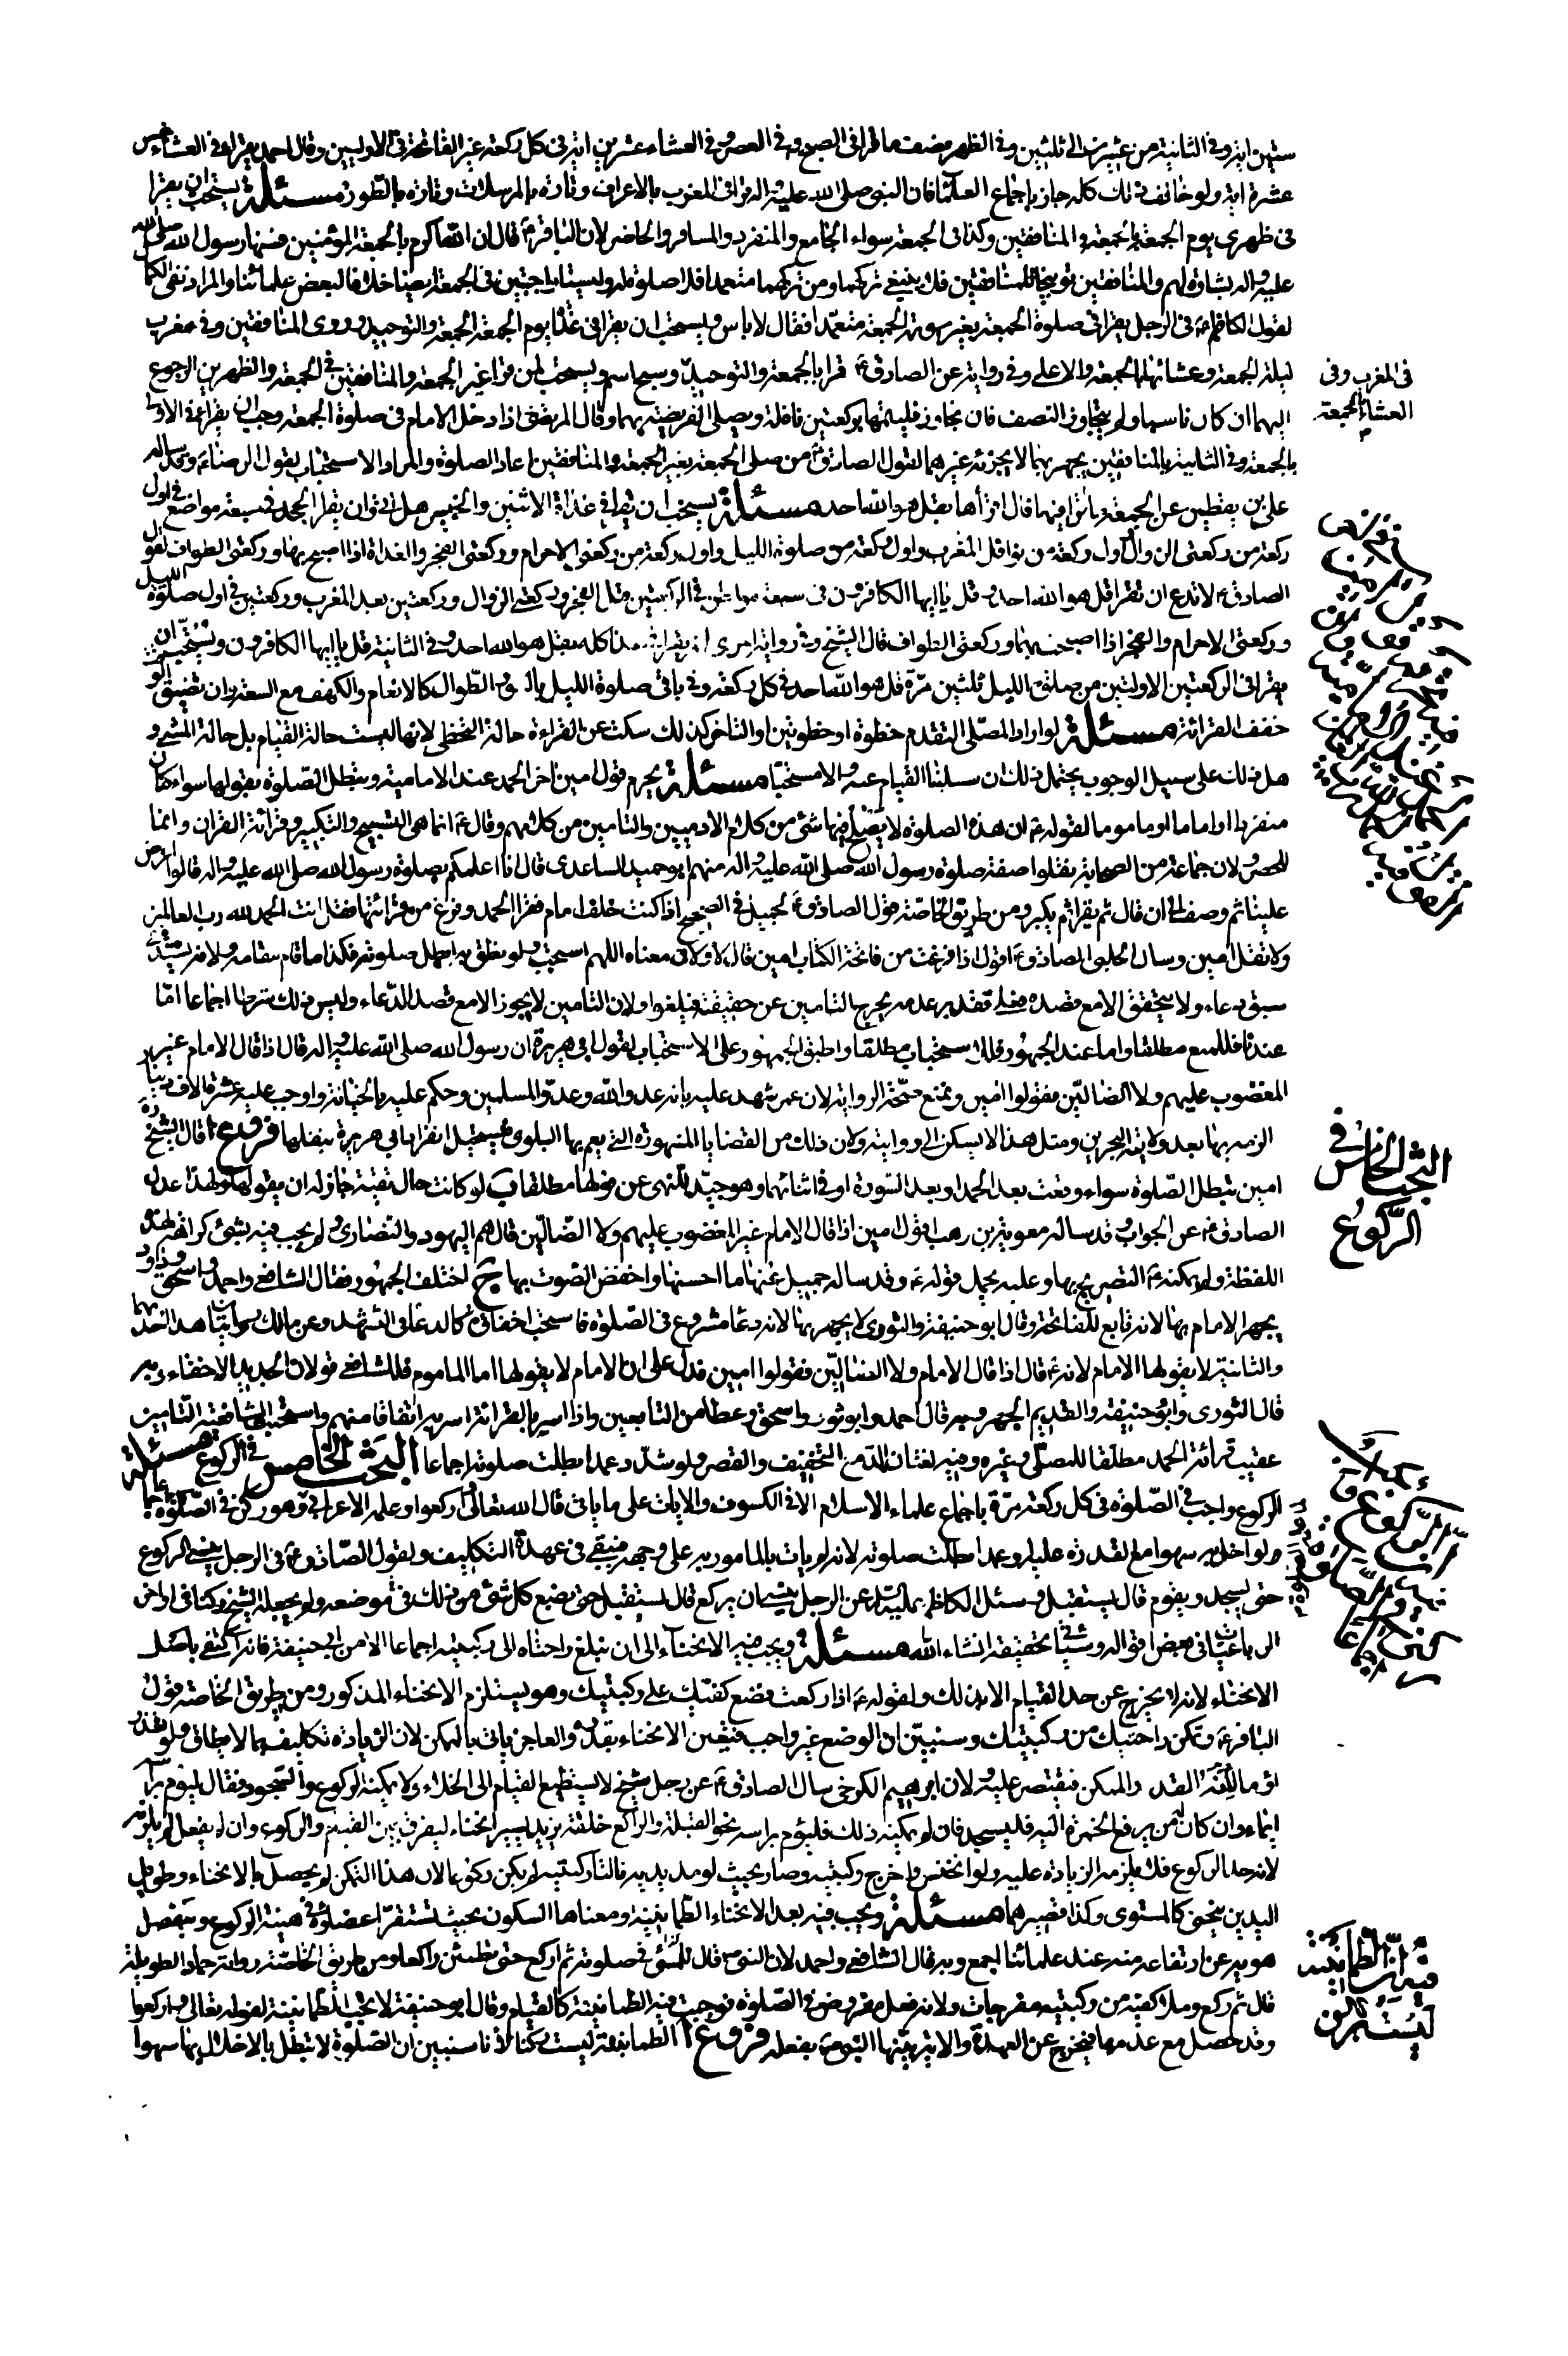 ستين اية وفي الثانية من عشرين الى ثلثين وفي الظهر نصف ما قرا في الصبح وفي العصر وفي العشاء عشرين اية في كل ركعة غير الفاتحة في الاوليين وقال احمد يقرا في العشاء خمس
عشرة اية ولو خالف ذلك كله جاز باجماع العلماء فان النبي صلى الله عليه واله قرا في المغرب بالاعراف وتارة بالمرسلات وتارة بالطور مسئلة يستحب ان يقرا
في ظهري يوم الجمعة بالجمعة والمنافقين وكذا في الجمعة سواء الجامع والمنفرد والمسافر والحاضر لان الباقر ع قال ان الله اكرم بالجمعة المؤمنين فسنها رسول الله صلى الله
عليه واله بشارة لهم والمنافقين توبيخا للمنافقين فلا ينبغي تركهما ومن تركهما متعمدا فلا صلوة له وليستا واجبتين في الجمعة ايضا خلافا لبعض علمائنا والمراد نفي الكمال
لقول الكاظم ع في الرجل يقرا في صلوة الجمعة بغير سورة الجمعة متعمدا فقال لا باس ويستحب ان يقرا في غداة يوم الجمعة الجمعة والتوحيد وروى المنافقين وفي مغرب
ليلة الجمعة وعشائها الجمعة والاعلى وفي رواية عن الصادق ع قرا بالجمعة والتوحيد وسبح اسم ويستحب لمن قرا غير الجمعة والمنافقين في الجمعة والظهرين الرجوع
اليهما ان كان ناسيا ولم يتجاوز النصف فان تجاوز فليتمها ركعتين نافلة ويصلى الفريضة بهما وقال المرتضى اذا دخل الامام في صلوة الجمعة وجب ان يقرا في الاولى
بالجمعة وفي الثانية بالمنافقين يجهر بهما لا يجزئه غيرهما لقول الصادق ع من صلى الجمعة بغير الجمعة والمنافقين اعاد الصلوة والمراد الاستحباب لقول الرضا ع وقد ساله
علي بن يقطين عن الجمعة ما اقرا فيها قال اقراها بقل هو الله احد مسئلة يستحب ان يقرا في غداة الاثنين والخميس هل اتى وان يقرا الجحد في سبعة مواضع في اول
ركعة من ركعتي الزوال واول ركعة من نوافل المغرب واول ركعة من صلوة الليل واول ركعة من ركعتي الاحرام وركعتي الفجر والغداة اذا اصبح بها وركعتي الطواف لقول
الصادق ع لا تدع ان تقرا قل هو الله احد وقل يا ايها الكافرون في سبعة مواطن في الركعتين قبل الفجر وركعتي الزوال وركعتين بعد المغرب وركعتين في اول صلوة الليل
وركعتي الاحرام والفجر اذا اصبحت بها وركعتي الطواف قال الشيخ وفي رواية اخرى انه يقرا في هذا كله بقل هو الله احد وفي الثانية قل يا ايها الكافرون ويستحب ان
يقرا في الركعتين الاولتين من صلوة الليل ثلثين مرة قل هو الله احد في كل ركعة وفي باقي صلوة الليل بالسور الطوال كالانعام والكهف مع السعة وان تضيق الوقت
خفف القرائة مسئلة لو اراد المصلي التقدم خطوة او خطوتين او التاخر كذلك سكت عن القراءة حالة التخطي لانها ليست حالة القيام بل حالة المشي و
هل ذلك على سبيل الوجوب يحتمل ذلك ان سلبنا القيام عنه والا مستحبا مسئلة يحرم قول امين اخر الحمد عند الامامية وتبطل الصلوة بقولها سواء كان
منفردا او اماما او ماموما لقوله ع ان هذه الصلوة لا يصلح فيها شئ من كلام الادميين والتامين من كلامهم وقال ع انما هي التسبيح والتكبير وقرائة القران وانما
للحصر ولان جماعة من الصحابة نقلوا صفة صلوة رسول الله صلى الله عليه واله منهم ابو حميد الساعدي قال انا اعلمكم بصلوة رسول الله صلى الله عليه واله قالوا اعرض
علينا ثم وصف الى ان قال ثم يقرا ثم يكبر ومن طريق الخاصة قول الصادق ع لجميل في الصحيح اذا كنت خلف امام فقرا الحمد وفرغ من قرائتها فقل انت الحمد لله رب العالمين
ولا تقل امين وسال الحلبي الصادق ع اقول اذا فرغت من فاتحة الكتاب امين قال لا ولان معناه اللهم استجب ولو نطق به ابطل صلوته فكذا ما قام مقامه ولانه يستدعي
سبق دعاء ولا يتحقق الا مع قصده فعلى تقدير عدمه يخرج التامين عن حقيقته فيلغو ولان التامين لا يجوز الا مع قصد الدعاء وليس ذلك شرطا اجماعا اما
عندنا فللمنع مطلقا واما عند الجمهور فللاستحباب مطلقا واطبق الجمهور على الاستحباب لقول ابي هريرة ان رسول الله صلى الله عليه واله قال اذا قال الامام غير
المغضوب عليهم ولا الضالين فقولوا امين ونمنع صحة الرواية لان عمر شهد عليه بانه عدو الله وعدو المسلمين وحكم عليه بالخيانة واوجب عليه عشرة الاف دينار
الزمه بها بعد ولايته البحرين ومثل هذا لا يسكن الى روايته ولان ذلك من القضايا المشهورة التي يعم بها البلوى فيستحيل انفراد ابي هريرة بنقلها فروع ا قال الشيخ
امين تبطل الصلوة سواء وقعت بعد الحمد او بعد السورة او في اثنائهما وهو جيد للنهي عن قولها مطلقا ب لو كانت حال تقية جاز له ان يقولها ولهذا عدل
الصادق ع عن الجواب وقد ساله معوية بن وهب اقول امين اذا قال الامام غير المغضوب عليهم ولا الضالين قال هم اليهود والنصارى ولم يجب فيه بشئ كراهة لهذه
اللفظة ولم يمكنه ع التصريح بها وعليه يحمل قوله ع وقد ساله جميل عنها ما احسنها واخفض الصوت بها ج اختلف الجمهور فقال الشافعي واحمد واسحق وداود
يجهر الامام بها لانه تابع للفاتحة وقال ابو حنيفة والثوري لا يجهر بها لانه دعا مشروع في الصلوة فاستحب اخفاؤه كالدعا في التشهد وعن مالك روايتان احديهما هذا
والثانية لا يقولها الامام لانه ع قال اذا قال الامام ولا الضالين فقولوا امين فدل على ان الامام لا يقولها اما الماموم فللشافعي قولان الجديد الاخفاء وبه
قال الثوري وابو حنيفة والقديم الجهر وبه قال احمد وابو ثور واسحق وعطا من التابعين واذا اسر بالقرائة اسر به اتفاقا منهم واستحب الشافعية التامين
عقيب قرائة الحمد مطلقا للمصلي وغيره وفيه لغتان المد مع التخفيف والقصر ولو شدد عمدا بطلت صلوته اجماعا البحث الخامس في الركوع مسئلة
الركوع واجب في الصلوة في كل ركعة مرة باجماع علماء الاسلام الا في الكسوف والايات على ما ياتي قال الله تعالى اركعوا وعلم الاعرابي وهو ركن في الصلوة اجماعا
ولو اخل به سهوا مع قدرته عليه او عمدا بطلت صلوته لانه لم يات بالمامور به على وجهه فيبقى في عهدة التكليف ولقول الصادق ع في الرجل ينسى الركوع
حتى يسجد ويقوم قال يستقبل وسئل الكاظم عليه السلام عن الرجل ينسى ان يركع قال يستقبل حتى يضع كل شئ من ذلك في موضعه ولم يجعله الشيخ ركنا في اواخر
الرباعيات في بعض اقواله وسياتي تحقيقه انشاء الله مسئلة ويجب فيه الانحناء الى ان تبلغ راحتاه الى ركبتيه اجماعا الا من ابي حنيفة فانه اكتفى باصل
الانحناء لانه لا يخرج عن حد القيام الا بذلك ولقوله ع اذا ركعت فضع كفيك على ركبتيك وهو يستلزم الانحناء المذكور ومن طريق الخاصة قول
الباقر ع وتمكن راحتيك من ركبتيك وسنبين ان الوضع غير واجب فتعين الانحناء بقدره والعاجز ياتي بالممكن لان الزيادة تكليف بما لا يطاق ولو تعذر
اومأ لانه القدر الممكن فيقتصر عليه ولان ابرهيم الكرخي سال الصادق ع عن رجل شيخ لا يستطيع القيام الى الخلاء ولا يمكنه الركوع والسجود فقال ليؤم براسه
ايماء وان كان له من يرفع الخمرة اليه فليسجد فان لم يمكنه ذلك فليؤم براسه نحو القبلة والراكع خلقة يزيد يسير انحناء ليفرق بين القيام والركوع وان لم يفعل لم يلزمه
لانه حد الركوع فلا يلزمه الزيادة عليه ولو انخنس واخرج ركبتيه وصار بحيث لو مد يديه نالتا ركبتيه لم يكن ركوعا لان هذا التمكن لم يحصل بالانحناء وطويل
اليدين ينحني كالمستوى وكذا قصيرهما مسئلة ويجب فيه بعد الانحناء الطمانينة ومعناها السكون بحيث تستقر اعضاؤه في هيئة الركوع وينفصل
هويه عن ارتفاعه منه عند علمائنا اجمع وبه قال الشافعي واحمد لان النبي ص قال للمسئ في صلوته ثم اركع حتى تطمئن راكعا ومن طريق الخاصة رواية حماد الطويلة
قال ثم ركع وملا كفيه من ركبتيه مفرجات ولانه فعل مفروض في الصلوة فوجبت فيه الطمانينة كالقيام وقال ابو حنيفة لا تجب الطمانينة لقوله تعالى واركعوا
وقد حصل مع عدمها فيخرج عن العهدة والاية بينها النبي ص بفعله فروع ا الطمانينة ليست ركنا لانا سنبين ان الصلوة لا تبطل بالاخلال بها سهوا
في المغرب وفي
العشاء الجمعة
البحث الخامس في
الركوع
ان الطمانينة
فيه
ليست بركن